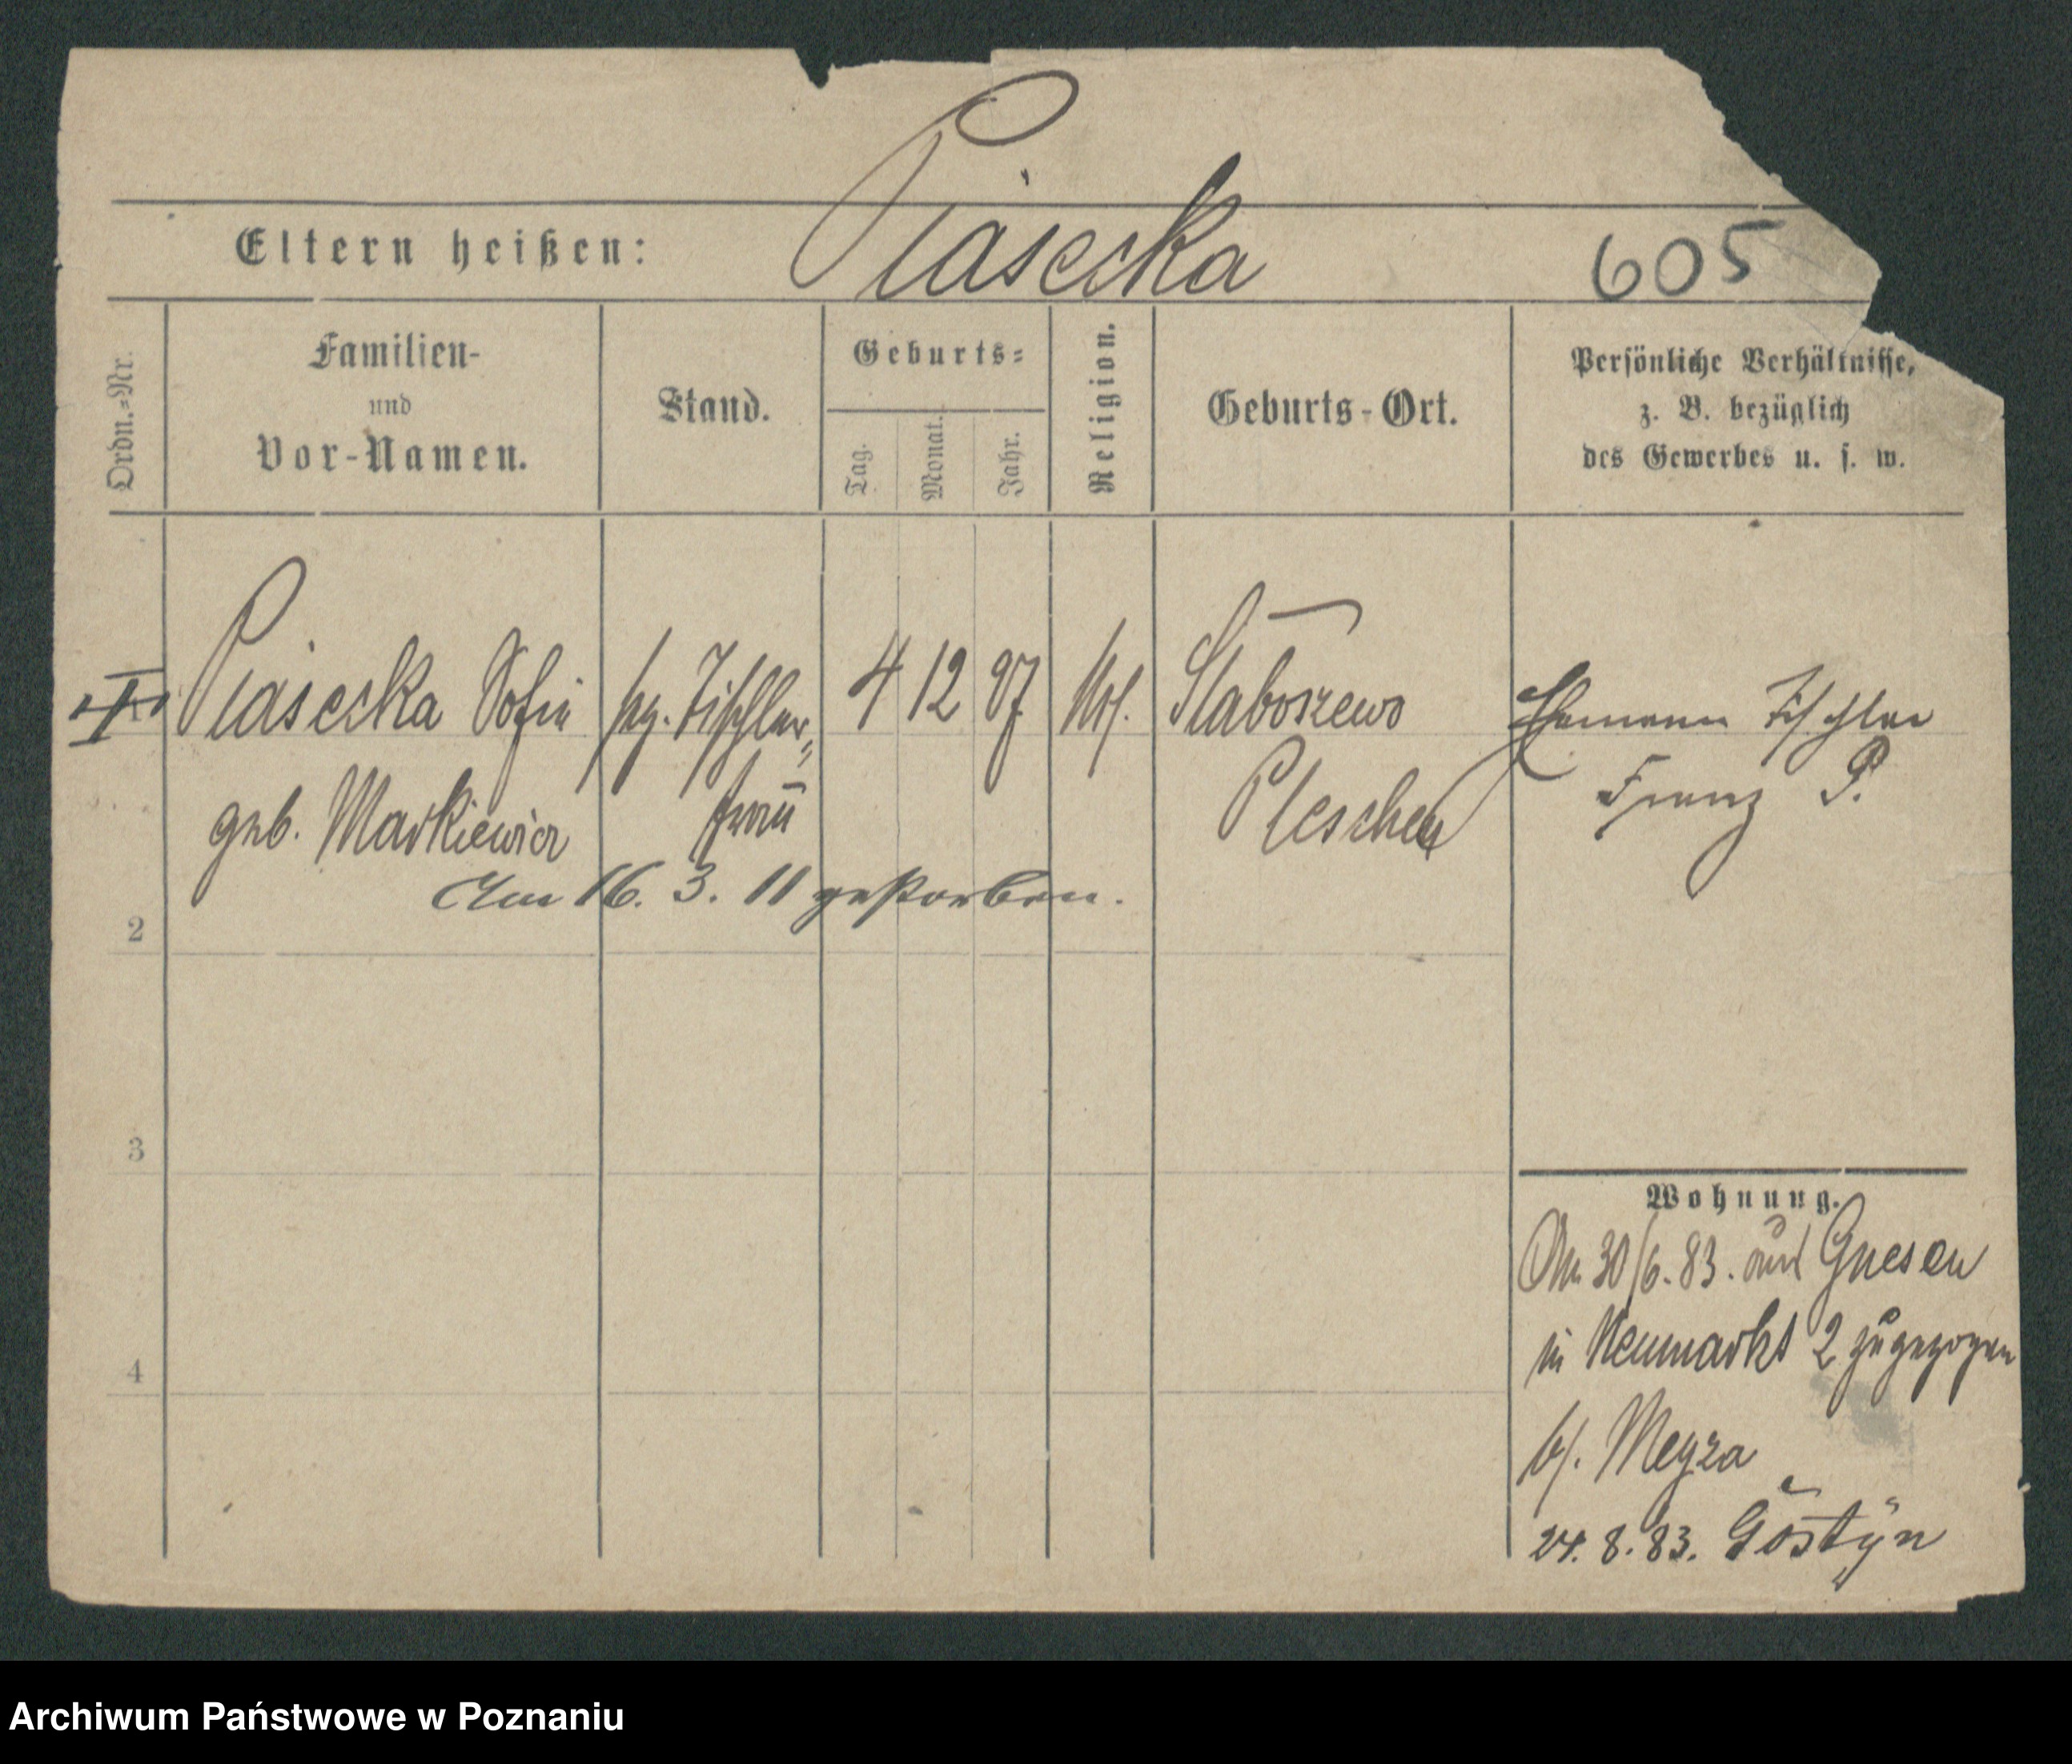 Eltern heißen: Piasecka 605
Ordn.=Nr.
Familien-
und
Vor-Namen.
Stand.
Geburts=
Tag.
Monat.
Jahr.
Religion.
Geburts-Ort.
Persönliche Verhältnisse,
z. B. bezüglich
des Gewerbes u. s. w.
I Piasecka Sofie Tischler„ 4 12 Staboszewo Ehemann Tischler
geb. Markiewicz frau Pleschen Franz P.
Am 16. 3. 11 gestorben.
2
3
4
Wohnung.
Am 30/6. 83. aus Gnesen
in Neumarkt 2 zugezogen
b/. Meyza
24. 8. 83. Gostyn
Archiwum Państwowe w Poznaniu